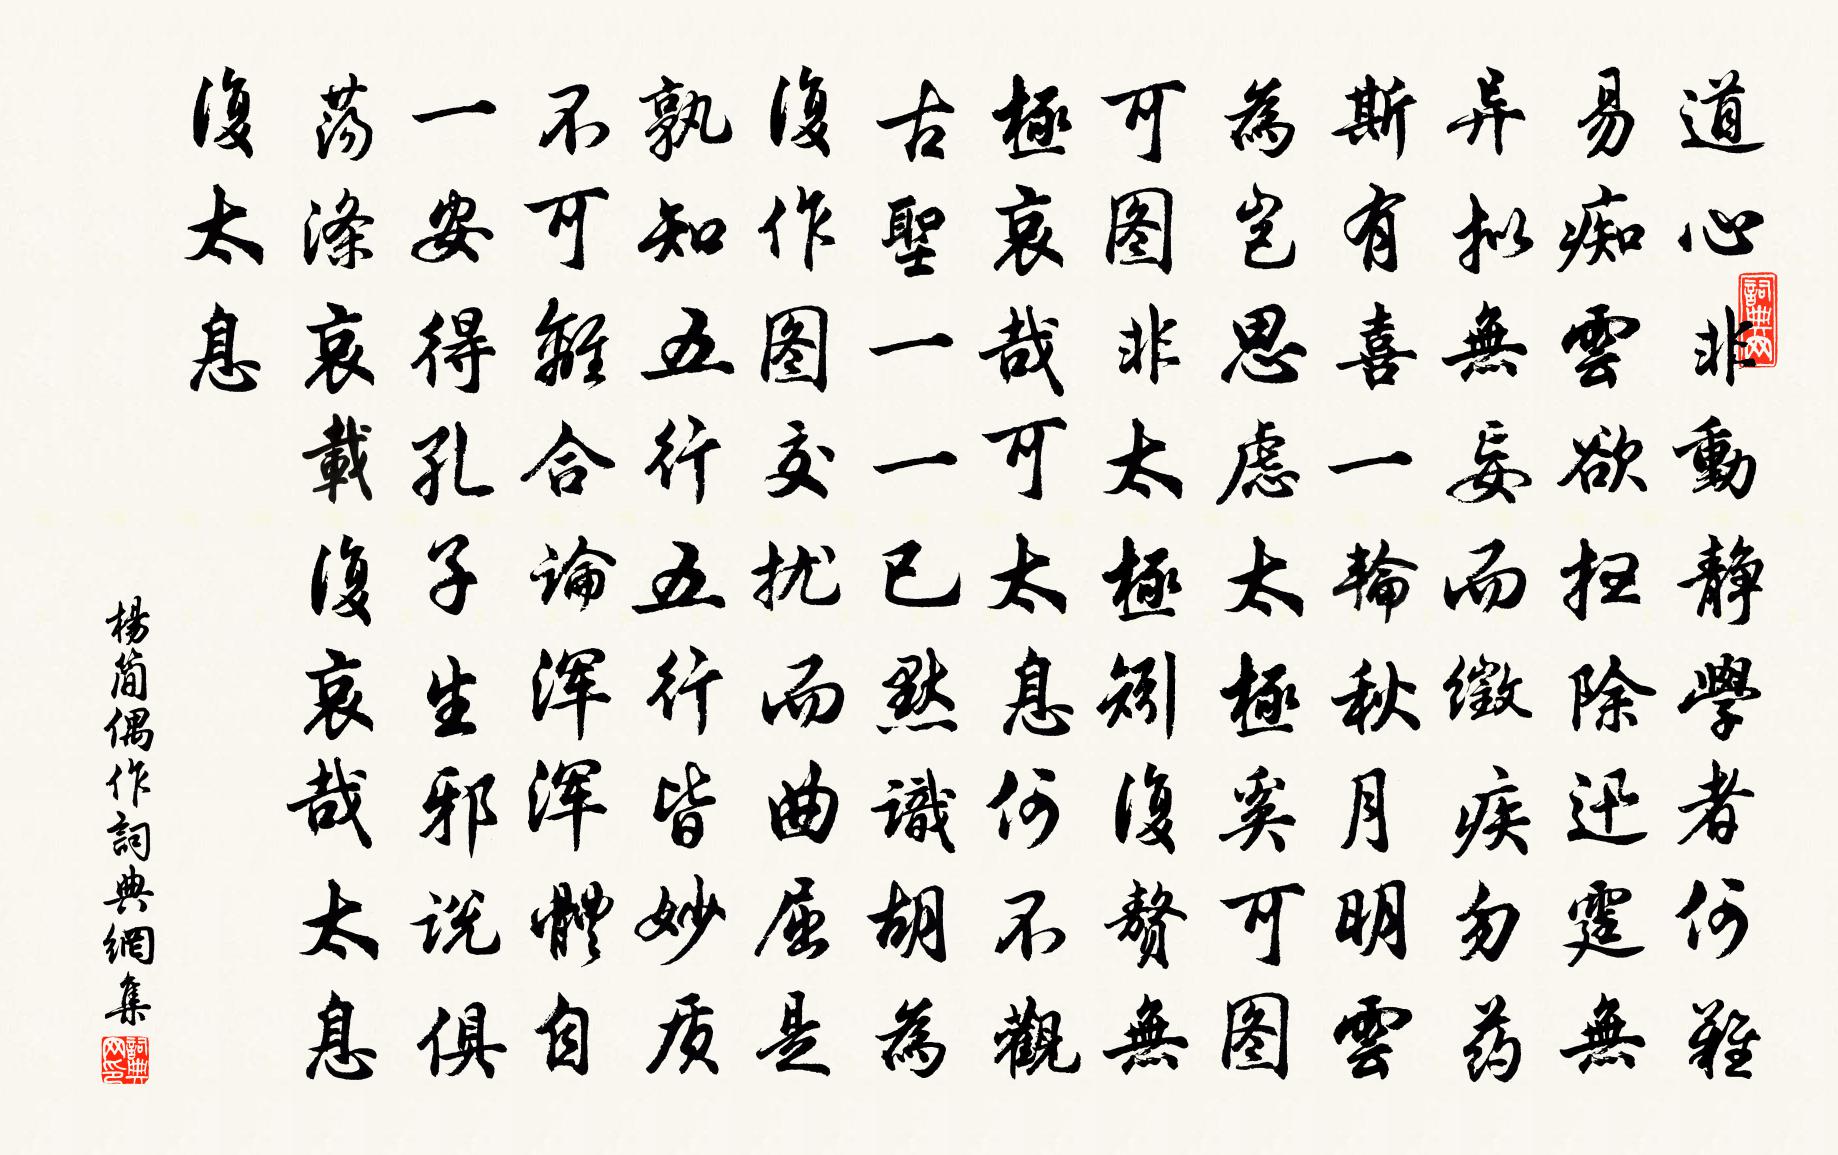 道心非動静學者何難
易痴雲欲扫除迅霆無
异拟無妄而徵疾勿药
斯有喜一輪秋月明雲
為岂思慮太極奚可图
可图非太極矧復赘無
極哀哉可太息何不觀
古聖一一已默識胡為
復作图交扰而曲屈是
孰知五行五行皆妙质
不可離合論浑浑體自
一安得孔子生邪说俱
荡滌哀載復哀哉太息
復太息
楊简偶作詞典網集
詞典网
詞典网印